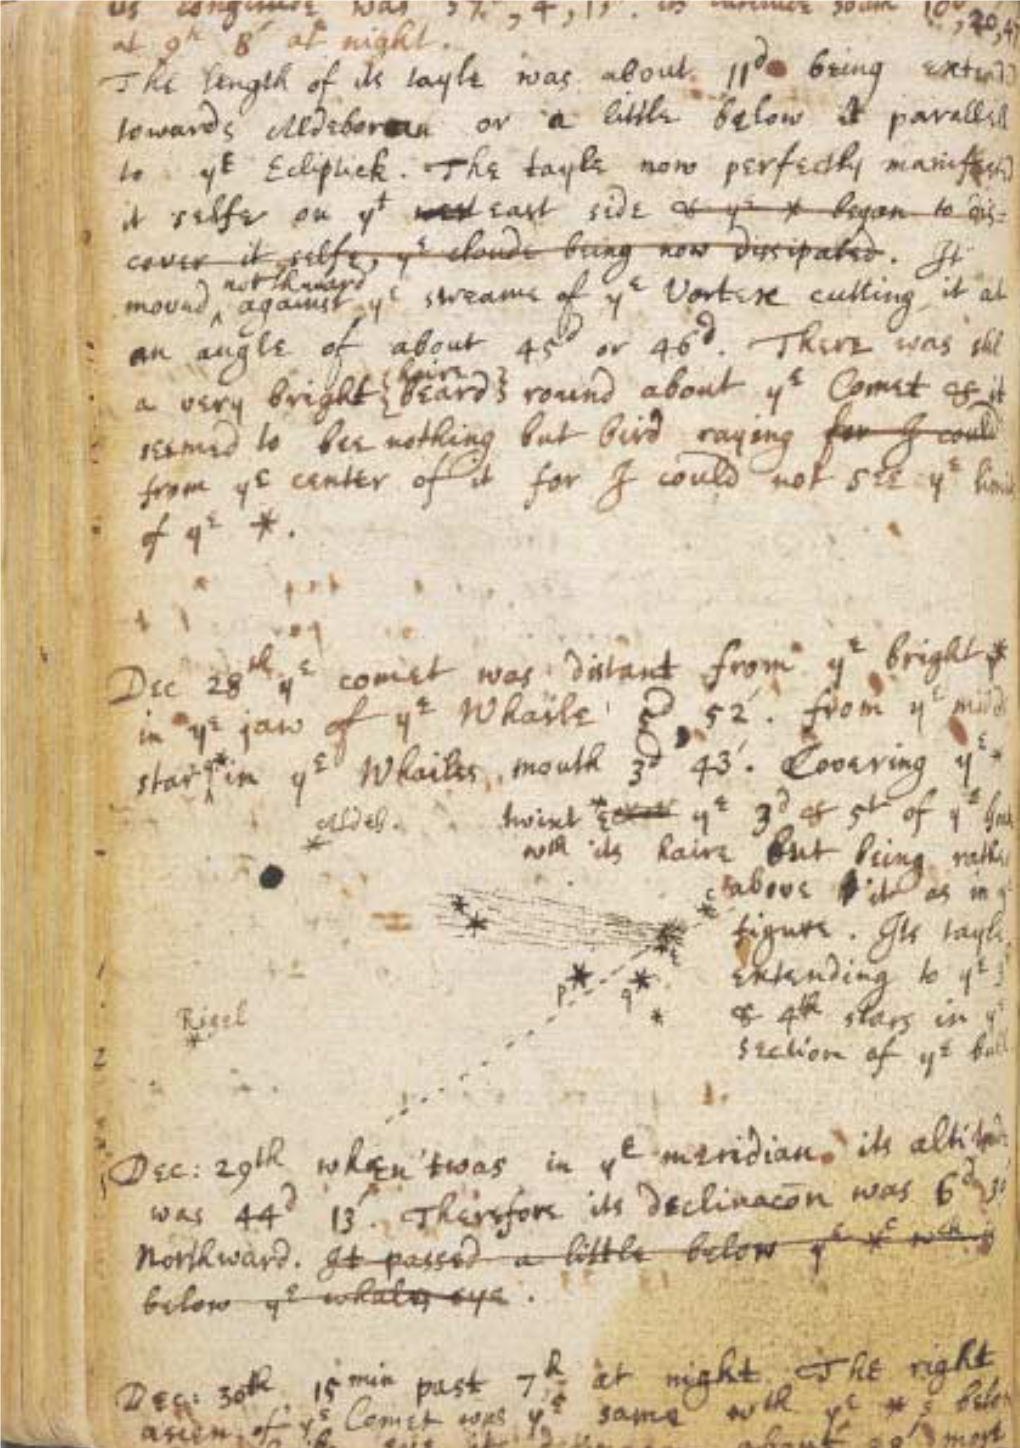 its longitude was 37, 4, 13. its latitude south 10, 20, 4
at 9h 8' at night.
The length of its tayle was about 11d being extend
towards Aldeboran or a little below it parallell
to yE Ecliptick. The tayle now perfectly manifested
it selfe on yt west east side & yE * began to dis-
cover it selfe, yE clouds being now dissipated. It
northward
moved ‸ against yE streame of yE Vortex cutting it at
an angle of about 45d or 46d. There was still
haire
a very bright {beard} round about yE Comet & it
seemed to bee nothing but raying for I could
from yE center of it for I could not see yE limit
of yE *.
Dec 28th yE comet was distant from yE bright *
in yE jaw of yE Whaile 5d, 52'. from yE midd
star ‸ in yE Whailes mouth 3d 43'. Covering yE *
Aldeb.
twixt yE 3d & 5t of yE
wth its haire but being rather
above it as in yE
figure. Its tayle
extending to yE 3
& 4th stars in yE
section of yE bull
c
E
p
q
Rigel
1
2
Dec: 29th when 'twas in yE meridian its altitude
was 44d 13'. Therefore its declinacōn was 6d, 3
Northward. It passed a little below yE * wch is
below yE whales eye.
Dec: 30th, 15min past 7h at night. The right
ascen of yE Comet was yE same wth yE * E below
about most